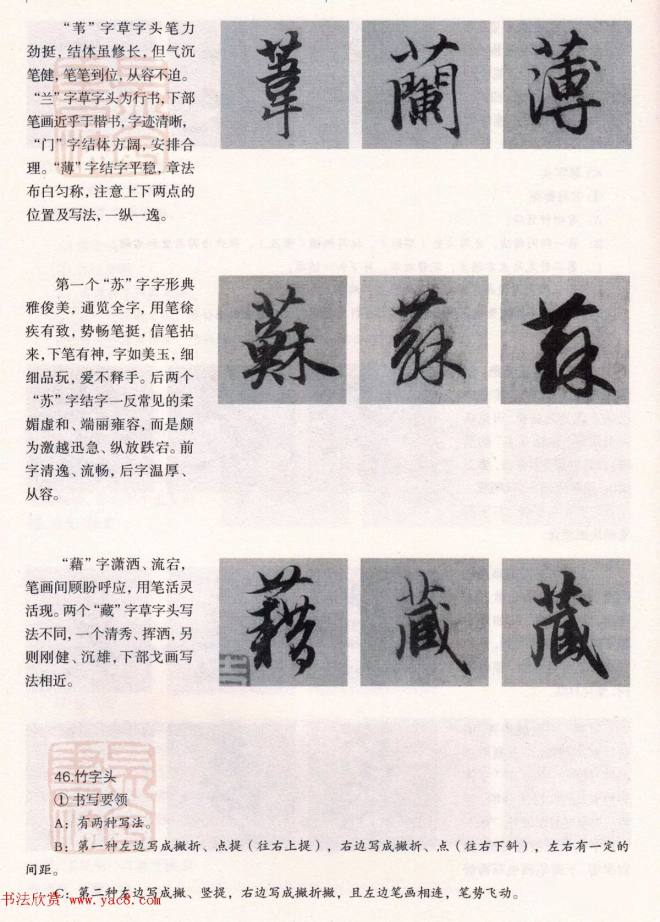 “苇”字草字头笔力
劲挺，结体虽修长，但气沉
笔健，笔笔到位，从容不迫。
“兰”字草字头为行书，下部
笔画近乎于楷书，字迹清晰，
“门”字结体方阔，安排合
理。“薄”字结字平稳，章法
布白匀称，注意上下两点的
位置及写法，一纵一逸。
葦 蘭 薄
第一个“苏”字字形典
雅俊美，通览全字，用笔徐
疾有致，势畅笔挺，信笔拈
来，下笔有神，字如美玉，细
细品玩，爱不释手。后两个
“苏”字结字一反常见的柔
媚虚和、端丽雍容，而是颇
为激越迅急、纵放跌宕。前
字清逸、流畅，后字温厚、
从容。
蘇 蘇 蘇
“藉”字潇洒、流宕，
笔画间顾盼呼应，用笔活灵
活现。两个“藏”字草字头写
法不同，一个清秀、挥洒，另
则刚健、沉雄，下部戈画写
法相近。
藉 藏 藏
46.竹字头
①书写要领
A：有两种写法。
B：第一种左边写成撇折、点提（往右上提），右边写成撇折、点（往右下斜），左右有一定的
间距。
C：第二种左边写成撇、竖提，右边写成撇折撇，且左边笔画相连，笔势飞动。
书法欣赏 www.yac8.com